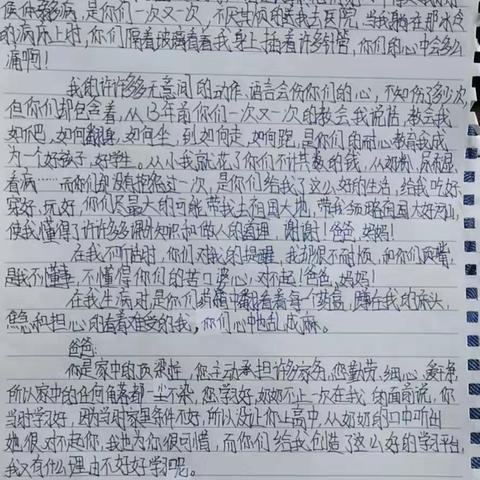 候体弱多病,是你们一次又一次,不厌其烦的送我去医院,当我躺在那冰冷
的病床上时,你们隔着玻璃看着我身上插着许多针管,你们的心中会多么
痛啊!
我的许许多多无意间的动作、语言会伤你们的心,不知伤了多少次,
但你们却包含着,从13年前你们一次又一次的教会我说话,教会我
如何爬,如何翻身,如何坐,到如何走,如何跑,是你们的耐心教育我成
为一个好孩子,好学生。从小我就花了你们不计其数的钱,从奶粉,尿不湿,
看病……而你们却没有抱怨过一次,是你们给我了这么好的生活,给我吃好,
穿好、玩好,你们尽最大的可能带我去祖国大地,带我领略祖国大好河山,
使我懂得了许许多多课外知识和做人的道理,谢谢!爸爸,妈妈!
在我不听话时,你们对我的提醒,我却很不耐烦,和你们顶嘴,
是我不懂事,不懂得你们的苦口婆心,对不起!爸爸,妈妈!
在我生病时是你们
焦急和担心的看着难受的我,你们心中也乱成麻。
爸爸:
你是家中的顶梁柱,您主动承担许多家务,您勤劳、细心、爱干净,
所以家中的任何角落都一尘不染,您学习好,奶奶不止一次在我的面前说,你
当时学习好,因为当时家里条件不好,所以没让你上高中,从奶奶的口中听出
她很对不起你,我也为你很可惜,而你们给我创造了这么好的学习平台,
我又有什么理由不好好学习呢。